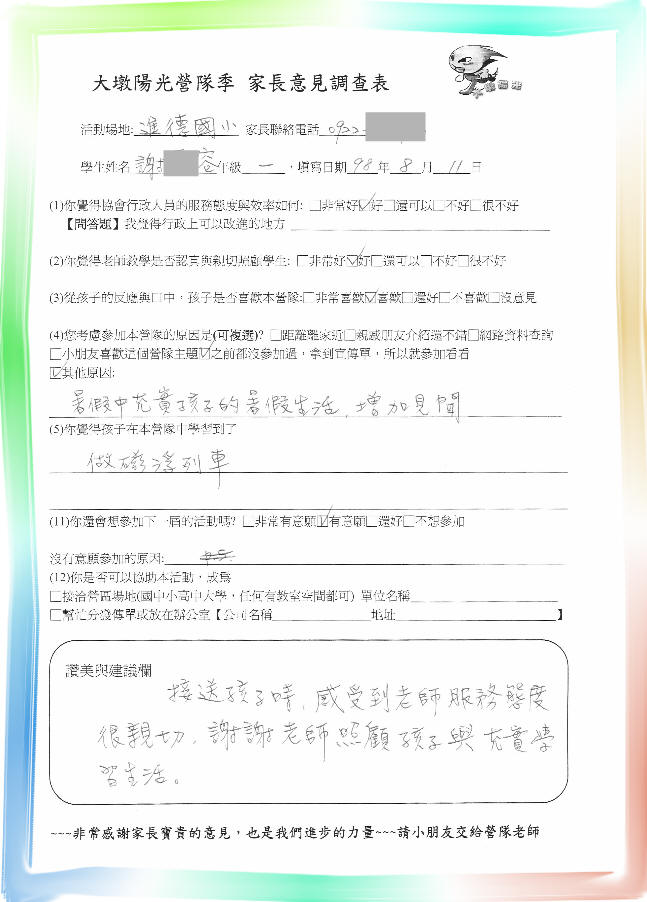 大墩陽光營隊季 家長意見調查表
活動場地: 進德國小 家長聯絡電話 0922-
學生姓名 謝 容 年級 一 ，填寫日期 98 年 8 月 11 日
(1)你覺得協會行政人員的服務態度與效率如何: □非常好☑好□還可以□不好□很不好
【問答題】我覺得行政上可以改進的地方
(2)你覺得老師教學是否認真與親切照顧學生: □非常好☑好□還可以□不好□很不好
(3)從孩子的反應與口中，孩子是否喜歡本營隊:□非常喜歡☑喜歡□還好□不喜歡□沒意見
(4)您考慮參加本營隊的原因是(可複選)? □距離離家近□親戚朋友介紹還不錯□網路資料查詢
□小朋友喜歡這個營隊主題☑之前都沒參加過，拿到宣傳單，所以就參加看看
☑其他原因:
暑假中充實孩子的暑假生活，增加見聞
(5)你覺得孩子在本營隊中學習到了
做磁浮列車
(11)你還會想參加下一屆的活動嗎? □非常有意願☑有意願□還好□不想參加
沒有意願參加的原因:
(12)你是否可以協助本活動，成為
□接洽營區場地(國中小高中大學，任何有教室空間都可) 單位名稱
□幫忙分發傳單或放在辦公室【公司名稱 地址 】
讚美與建議欄
接送孩子時，感受到老師服務態度
很親切，謝謝老師照顧孩子與充實學
習生活。
~~~非常感謝家長寶貴的意見，也是我們進步的力量~~~請小朋友交給營隊老師